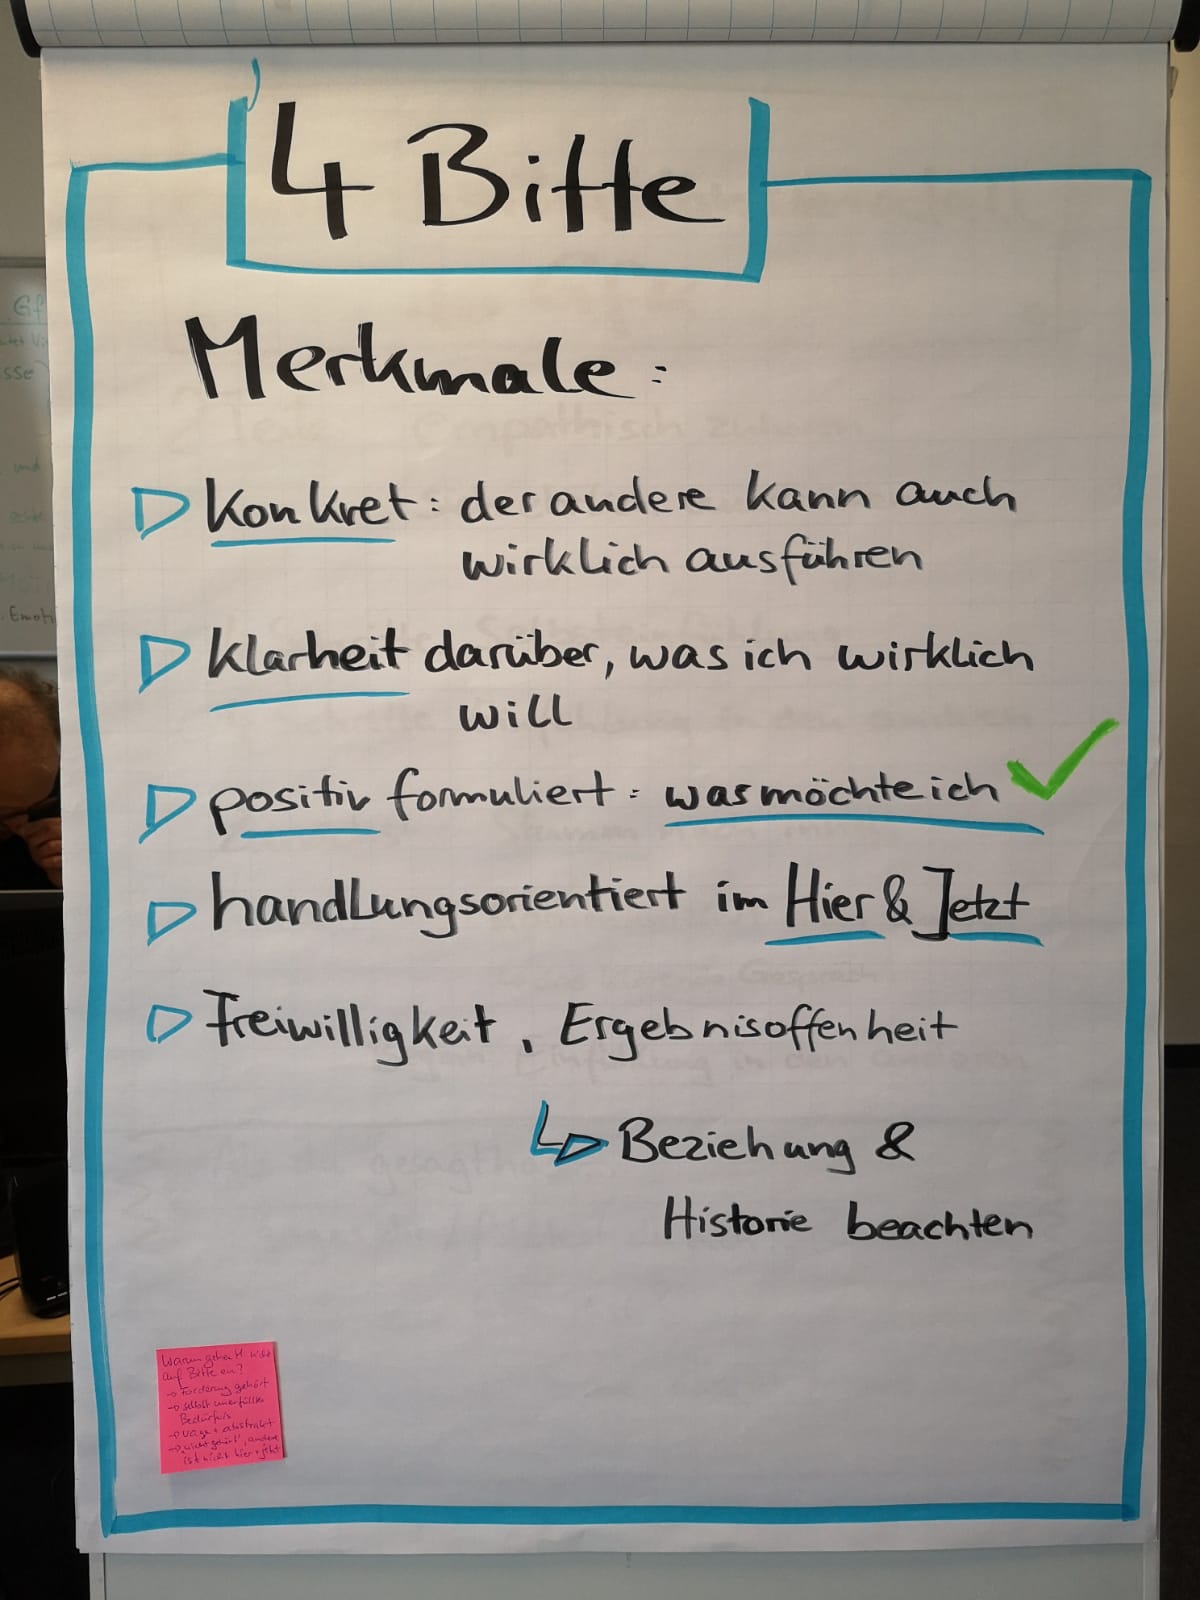 4 Bitte
Merkmale:
Konkret: der andere kann auch
wirklich ausführen
Klarheit darüber, was ich wirklich
will
positiv formuliert: was möchte ich
handlungsorientiert im Hier & Jetzt
Freiwilligkeit, Ergebnisoffenheit
Beziehung &
Historie beachten
Warum gehen M. nicht
auf Bitte ein?
→ Forderung gehört
→ selbst unerfülltes
Bedürfnis
→ vage + abstrakt
→ "nicht gehört", andere
ist nicht hier + jetzt
Emoti